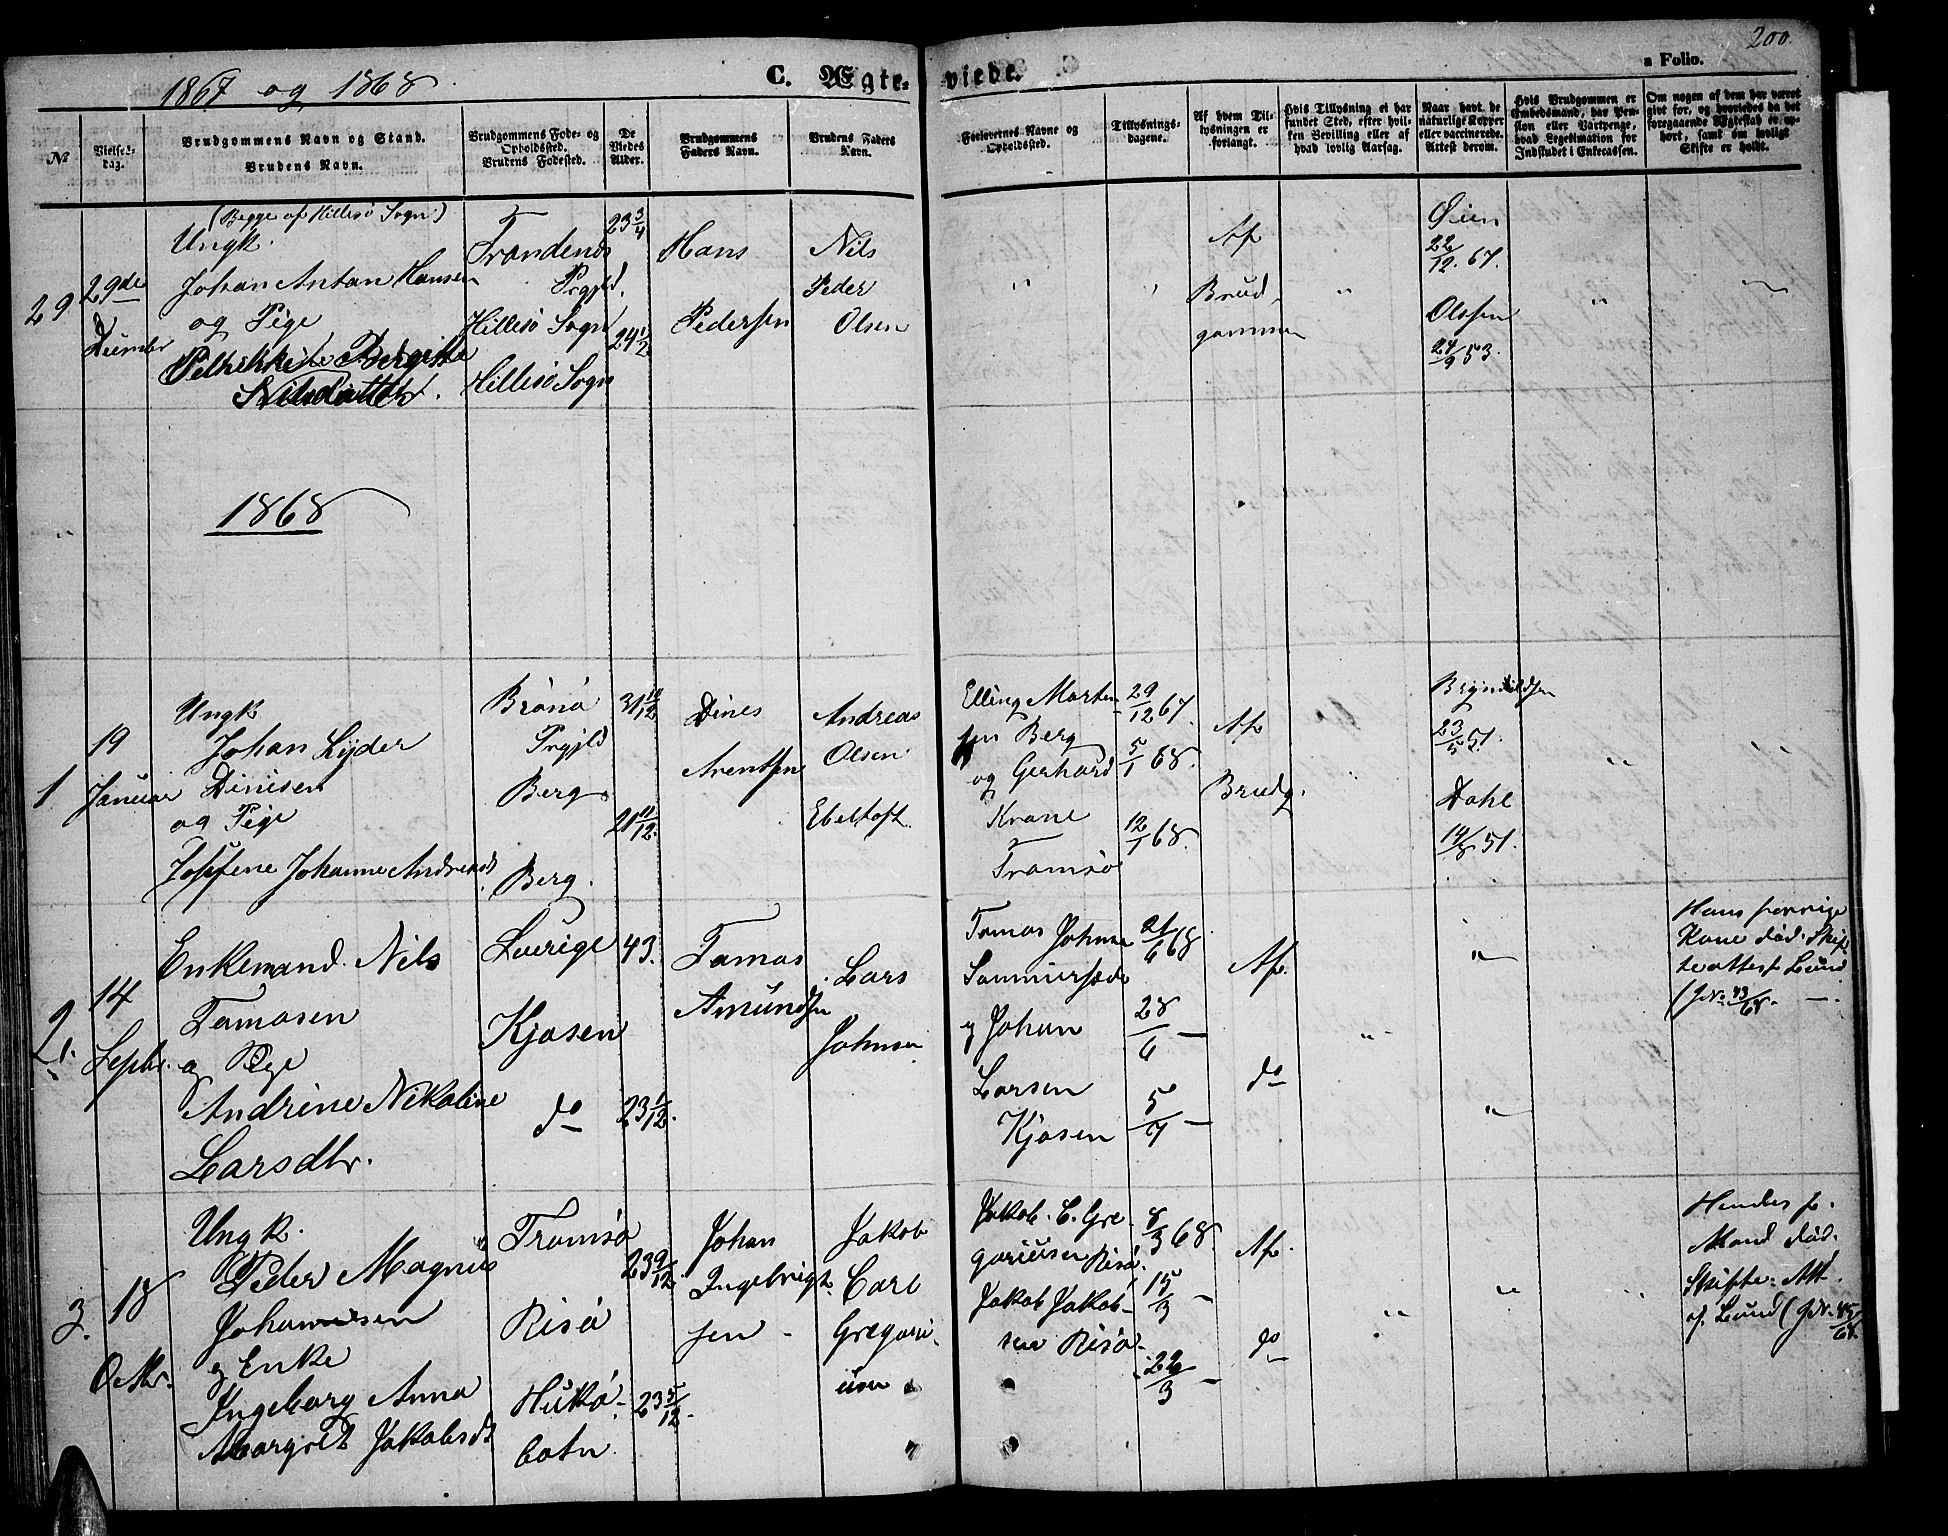 1867 og 1868.
C. Ægte-
viede.
a Folio.
200.
No
Vielses-
dag.
Brudgommens Navn og Stand.
Brudens Navn.
Brudgommens Føde- og
Opholdssted.
Brudens Fødested.
De
Viedes
Alder.
Brudgommens
Faders Navn.
Brudens Faders
Navn.
Forlovernes Navne og
Opholdssted.
Tillysnings-
dagene.
Af hvem Til-
lysningen er
forlangt.
Hvis Tillysning ei har
fundet Sted, efter hvil-
ken Bevilling eller af
hvad lovlig Aarsag.
Naar havt de
naturlige Kopper
eller vaccinerede.
Attest derom.
Hvis Brudgommen er
Embedsmand, har Pen-
sion eller Vartpenge,
hvad Legitimation for
Indskudet i Enkecassen.
Om nogen af dem har været
givt før, og hvorledes da det
foregaaende Ægteskab er op-
hørt, samt om lovligt
Skifte er holdt.
29
29de
(Begge af Hillesø Sogn.)
Ungk.
Johan Antan Hansen
og Pige
Nilsdatter.
Trondenes
Prgjld.
Hillesø Sogn
Hillesø Sogn
23 3/4
24 1/2
Hans
Pedersen
Nils
Peder
Olsen
"
"
Af
Brud-
gommen
"
Øien
22/12. 67.
Olsen
24/9 53.
"
1868
1
19
Januar
Ungk
Johan Lyder
Dinisen
og Pige
Josefine Johanne Andreasd.
Brønø
Prgjld
Berg
Berg.
31 10/12
21 11/12.
Dines
Arentsen
Andreas
Olsen
Ebeltoft.
Elling Morten-
sen Berg
og Gerhard
Krane
Tromsø
29/12 67.
5/1 68.
12/1 68.
Af
Brudg.
"
Brynildsen
23/5 51.
Dahl
14/8 51.
"
2.
14
Septbr.
Enkemand. Nils
Tomasen
og Pige
Andrine Nikoline
Larsdtr.
Sverige
Kjosen
do
43.
23 1/12.
Tomas
Amundsen
Lars
Johnsen
Tomas Johnsen
og Johan
Larsen
Kjosen
21/6 68
28/6 –
5/7 –
Af.
do
"
"
"
Hans forrige
Kone død. Skif-
teattest Lund
(JNo 43/68. –.
3.
18
Octbr.
Ungk.
Peder Magnus
Johannesen
og Enke
Ingeborg Anna
Margret Jakobsdt
Tromsø
Risø
botn.
23 9/12.
23 5/12.
Johan
Ingebrigt-
sen –
Jakob
Carl
Gregori-
usen
Jakob. C. Gre-
goriusen Risø.
Jakob Jakob-
sen Risø.
8/3 68.
15/3 –
22/3 –
Af.
do
"
"
"
Hendes f.
Mand død.
Skifte-Att.
af. Lund (JNr. 45/68.